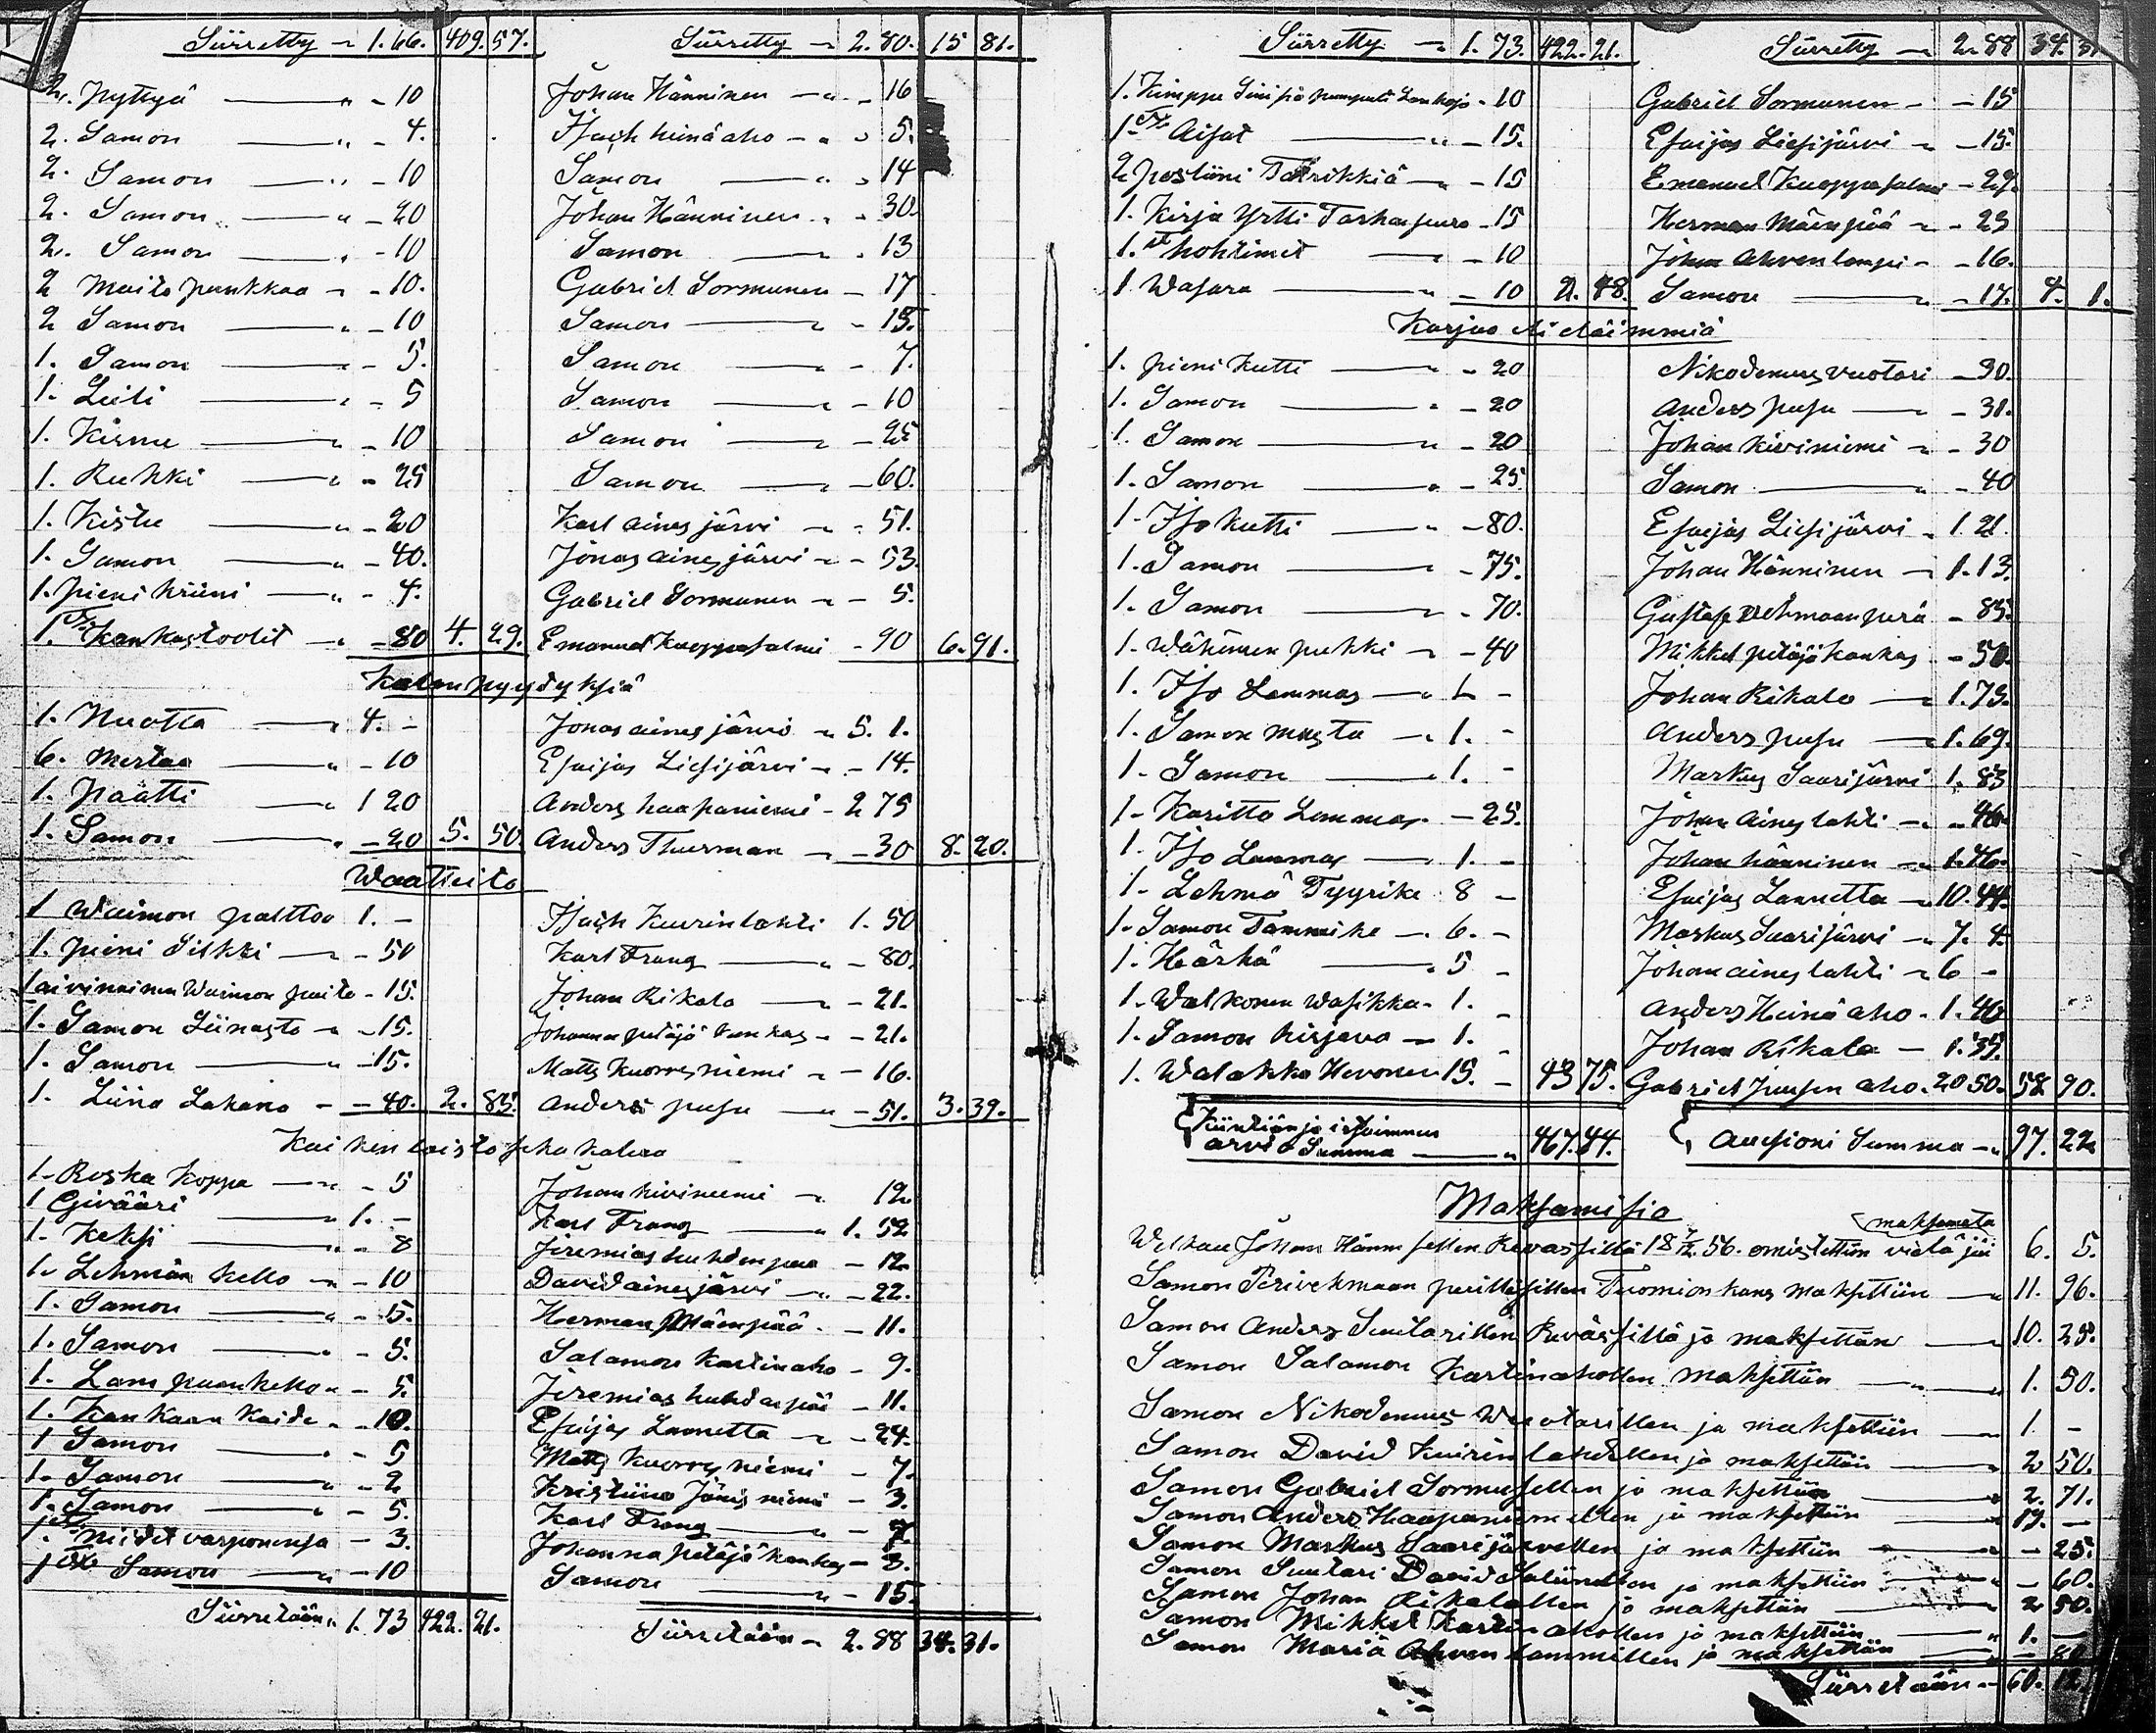 Siirretty — 1.66. 409.57. Siirretty — 2.80. 15 81.
2. pyttyä — „ - 10 Johan Hänninen — „ - 16
2. Samon — „ - 4. Isach heinäaho — „ - 5.
2. Samon — „ - 10 Samon — „ - 14
2. Samon — „ - 20 Johan Hänninen „ - 30.
2. Samon — „ - 10 Samon — „ - 13
2 Maito punkkaa — - 10. Gabriel Sormunen — 17
2 Samon — „ - 10 Samon — „ - 15.
1. Samon — „ - 5. Samon — „ - 7.
1. Leili — „ - 5 Samon — „ - 10
1. Kirnu — „ - 10 Samon — „ - 25
1. Rukki — „ - 25 Samon — „ - 60.
1. Kistu — „ - 20 Karl ainesjärvi — „ - 51.
1. Samon — „ - 40. Jonas ainesjärvi — - 53
1. pieni kriini — „ - 4. Gabriel Sormunen — - 5.
1. Kankastoolit — „ - 80 4. 29. Emanuel Kuoppasalmi - 90 6. 91.
Kalan pyydyksiä
1. Nuotta — „ 4. - Jonas ainesjärvi „ 5. 1.
6. Mertaa — „ - 10 Esaijas Liesijärvi „ - 14.
1. Päätti — „ 1 20 Anders haapaniemi - 2 75
1. Samon — „ - 20 5. 50. Anders Thurman — - 30 8. 20.
Waatteita
1 Waimon palttoo 1. - Isach Kuurinlahti 1. 50
1. pieni Silkki — „ - 50 Karl Frang — „ - 80.
1 aivinainen Waimon paita - 15. Johan Rikala — „ - 21.
1. Samon Liinasta „ - 15. Johanna petäjä kankas - - 21.
1. Samon — - 15. Matts Kuorresniemi „ - 16.
1. Liina Lakana — - 40. 2. 85. Anders pusu — „ - 51. 3. 39.
Kaikenlaista seka kaluu
1. Roska koppa — „ - 5 Johan kiviniemi — „ 12
1 Givääri — „ 1. - Karl Frang — „ 1. 52
1. Keksi — „ - 8 Jeremias huhdanpää - 12
1. Lehmän kello — „ - 10 David ainesjärvi — „ - 22.
1. Samon — „ - 15. Herman Mäenpää. - 11.
1. Samon — „ - 5. Salamon Kartinaho - 9.
1. Lampaankello „ - 5. Jeremias huhdanpää - 11.
1. Kankaan Kaide „ - 10. Esaijas Lannetta — „ - 24.
1 Samon — „ - 5 Matts Kuorresniemi - 7.
1. Samon — „ - 2 Kristiina Jänisniemi - 3.
1. Samon — „ - 5. Karl Frang — „ - 7.
1. - 3. Johanna petäjä kankas - 3.
1 Samon — „ - 10 Samon — „ - 15.
Siirretään „ 1. 73 422. 21. Siirretään — 2. 88 34. 31.
Siirretty — 1. 73. 422. 21. Siirretty — 2. 88 34. 31
1. - 10 Gabriel Sormunen - - 15
1. Aisat — „ - 15. Esaijas Liesijärvi „ - 15.
2 postiini Talrikkiä — „ - 15 Emanuel Kuoppasalmi - 29.
1. Kirja Yrtti Tarha - 15 Herman Mäenpää „ - 23
1. hohtimet — - 10 Johan Ahvenlampi - - 16.
1 Wasara — „ - 10 2. 48. Samon — „ - 17. 4. 1.
Karjaa eli eläimmiä
1. pieni kutti — „ - 20 Nikodemus vuotari - 30.
1. Samon — „ - 20 Anders pusu — „ - 31.
1. Samon — „ - 20 Johan kiviniemi „ - 30
1. Samon — „ - 25 Samon — „ - 40
1. Iso kutti — „ - 80. Esaijas Liesijärvi „ 1. 21.
1. Samon — - 75. Johan Hänninen — „ 1. 13.
1. Samon — „ - 70. Gustaf - 85.
1. Wähänen pukki — „ - 40 Mikkel petäjäkankas - 50.
1. Iso Lammas — „ 1. - Johan Rikala — „ 1. 75.
1. Samon musta — „ 1. - Anders pusu — „ 1. 69.
1. Samon — „ 1. - Markus Saarijärvi 1. 83
1. Karitta Lammas. - 25. Johan Aineslahti — „ - 46.
1. Iso Lammas — 1. - Johan hänninen — „ 1. 46.
1. Lehmä Tyyrike 8 - Esaijas Lannetta „ 10. 44.
1. Samon Tammike — 6. - Markus Saarijärvi — „ 7. 4.
1. Härkä — „ 5 - Johan aineslahti „ 6 -
1. Walkonen wasikka - 1. - Anders Heinäaho - 1. 40
1. Samon kirjava — 1. - Johan Rikala — 1. 35.
1. Walakka Hevonen 15. - 43 75. Gabriel Juusen aho. 20 50. 58 90.
Kiintiän ja irtaimmen
arvio Summa — „ 467. 44. Auksioni Summa „ 97. 22
Maksamisia
maksamata
Welkaa Johan Hänni sellen Revassilla 18 7/12 56. omistettiin vielä jäi 6. 5.
Samon perillisillen Tuomion kans maksettiin — „ 11. 96.
Samon Anders Suutarillen Reväsillä ja maksettiin — 10. 25.
Samon Salamon Kartinahollen maksettiin — „ 1. 50.
Samon Nikodemus Wuotarillen ja maksettiin — „ 1. -
Samon David Kuirinlahdellen ja maksettiin — „ 2 50.
Samon Gabriel Sormusellen ja maksettiin — „ 2. 71.
Samon Anders Haapaniemellen ja maksettiin — „ 19. —
Samon Markus Saarijärvellen ja maksettiin — „ - 25.
Samon Suutari David ja maksettiin — „ - 60.
Samon Johan Rikalallen ja maksettiin — „ 2 50.
Samon Mikkel Kartinahollen ja maksettiin — „ 1. —
Samon Maria Ahvenlammillen ja maksettiin — „ -
Siirretään — 60. 12